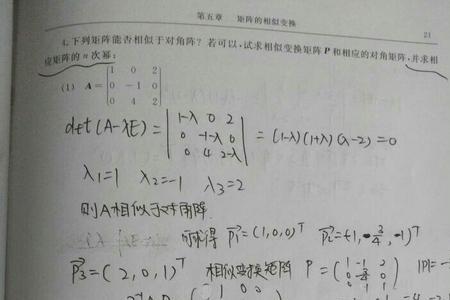 第五章 矩阵的相似变换 21
4. 下列矩阵能否相似于对角阵？若可以，试求相似变换矩阵 P 和相应的对角矩阵，并求相
应矩阵的 n 次幂：
(1) A = | 1 0 2 |
| 0 -1 0 |
| 0 4 2 |
det(A-λE) = | 1-λ 0 2 | = (1-λ)(1+λ)(λ-2) = 0
| 0 -1-λ 0 |
| 0 4 2-λ |
λ1=1 λ2=-1 λ3=2
则A相似于对角阵
可求得 P1=(1,0,0)^T
P3=(2,0,1)^T 相似变换矩阵 P=